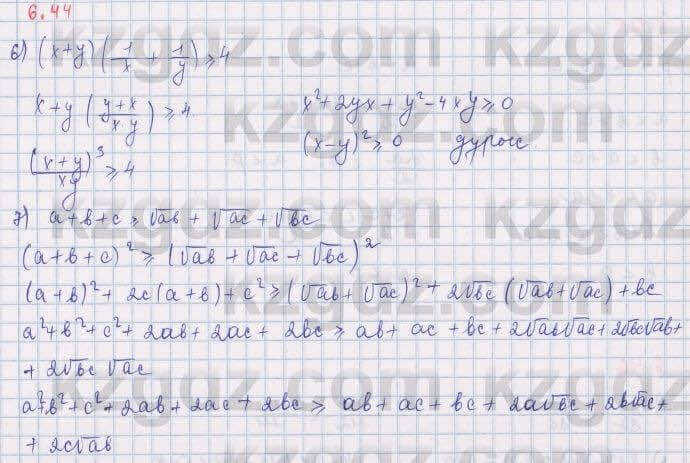 6.44
6) (x+y)(1/x + 1/y) ≥ 4
x+y (y+x/xy) ≥ 4
(x+y)³/xy ≥ 4
x²+2yx+y²-4xy ≥ 0
(x-y)² ≥ 0 дұрыс
7) a+b+c ≥ √ab + √ac + √bc
(a+b+c)² ≥ (√ab + √ac + √bc)²
(a+b)² + 2c(a+b) + c² ≥ (√ab + √ac)² + 2√bc (√ab+√ac) + bc
a²+b²+c²+2ab+2ac+2bc ≥ ab+ac+bc+2√ab√ac+2√bc√ab+
+ 2√bc √ac
a²+b²+c²+2ab+2ac+2bc ≥ ab+ac+bc+2a√bc+2b√ac+
+ 2c√ab
kzgdz.com